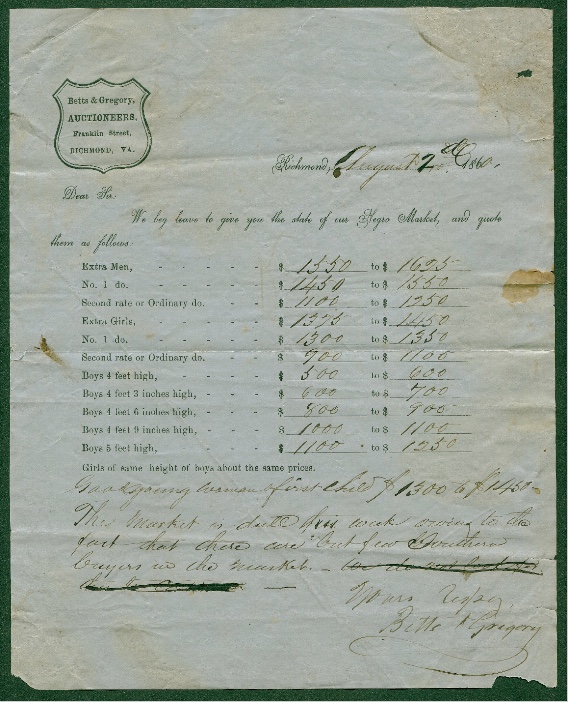 Betts & Gregory,
AUCTIONEERS,
Franklin Street,
RICHMOND, VA.
Richmond, August 2nd 1860.
Dear Sir:
We beg leave to give you the state of our Negro Market, and quote
them as follows:
Extra Men, - - - - - $ 1550 to $ 1625
No. 1 do. - - - - - $ 1450 to $ 1550
Second rate or Ordinary do. - - - $ 1100 to $ 1250
Extra Girls, - - - - - $ 1375 to $ 1450
No. 1 do. - - - - - $ 1300 to $ 1350
Second rate or Ordinary do. - - - $ 900 to $ 1100
Boys 4 feet high, - - - - $ 500 to $ 600
Boys 4 feet 3 inches high, - - - $ 600 to $ 700
Boys 4 feet 6 inches high, - - - $ 800 to $ 900
Boys 4 feet 9 inches high, - - - $ 1000 to $ 1100
Boys 5 feet high, - - - - $ 1100 to $ 1250
Girls of same height of boys about the same prices.
Good young woman & first child $1300 to $1450
This market is dull this week owing to the
fact that there are but few Southern
buyers in the market. –
Yours Respy,
Betts & Gregory